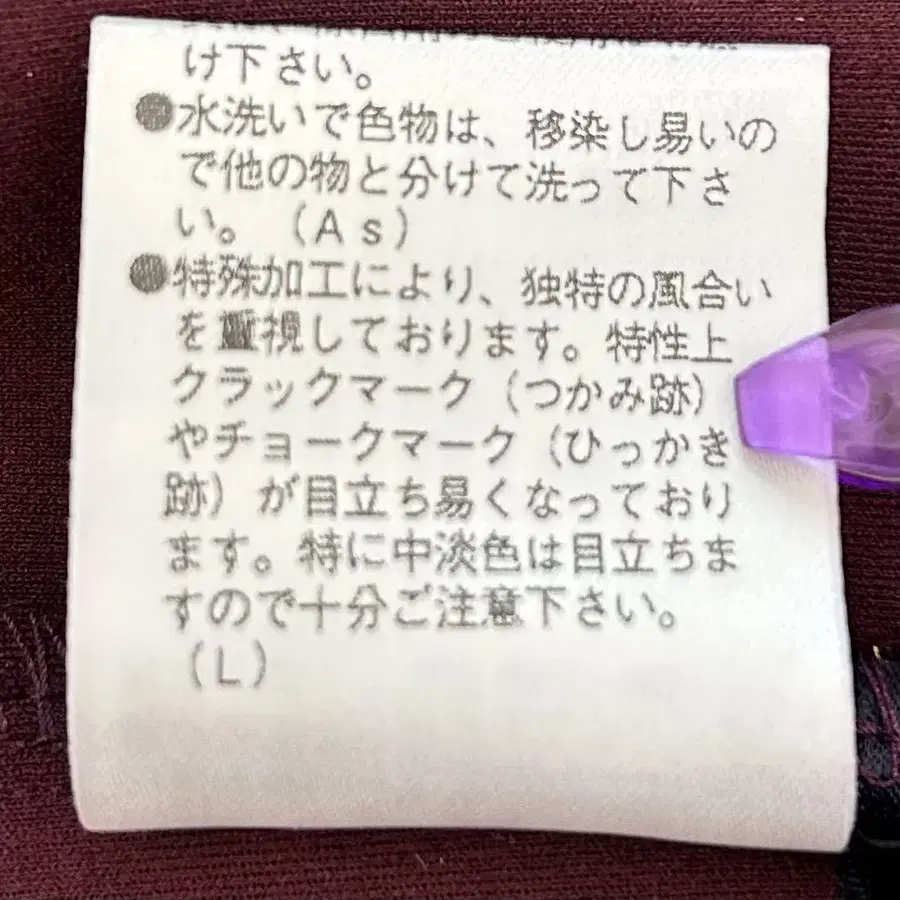 け下さい。
●水洗いで色物は、移染し易いの
で他の物と分けて洗って下さ
い。（As）
●特殊加工により、独特の風合い
を重視しております。特性上
クラックマーク（つかみ跡）
やチョークマーク（ひっかき
跡）が目立ち易くなっており
ます。特に中淡色は目立ちま
すので十分ご注意下さい。
（L）